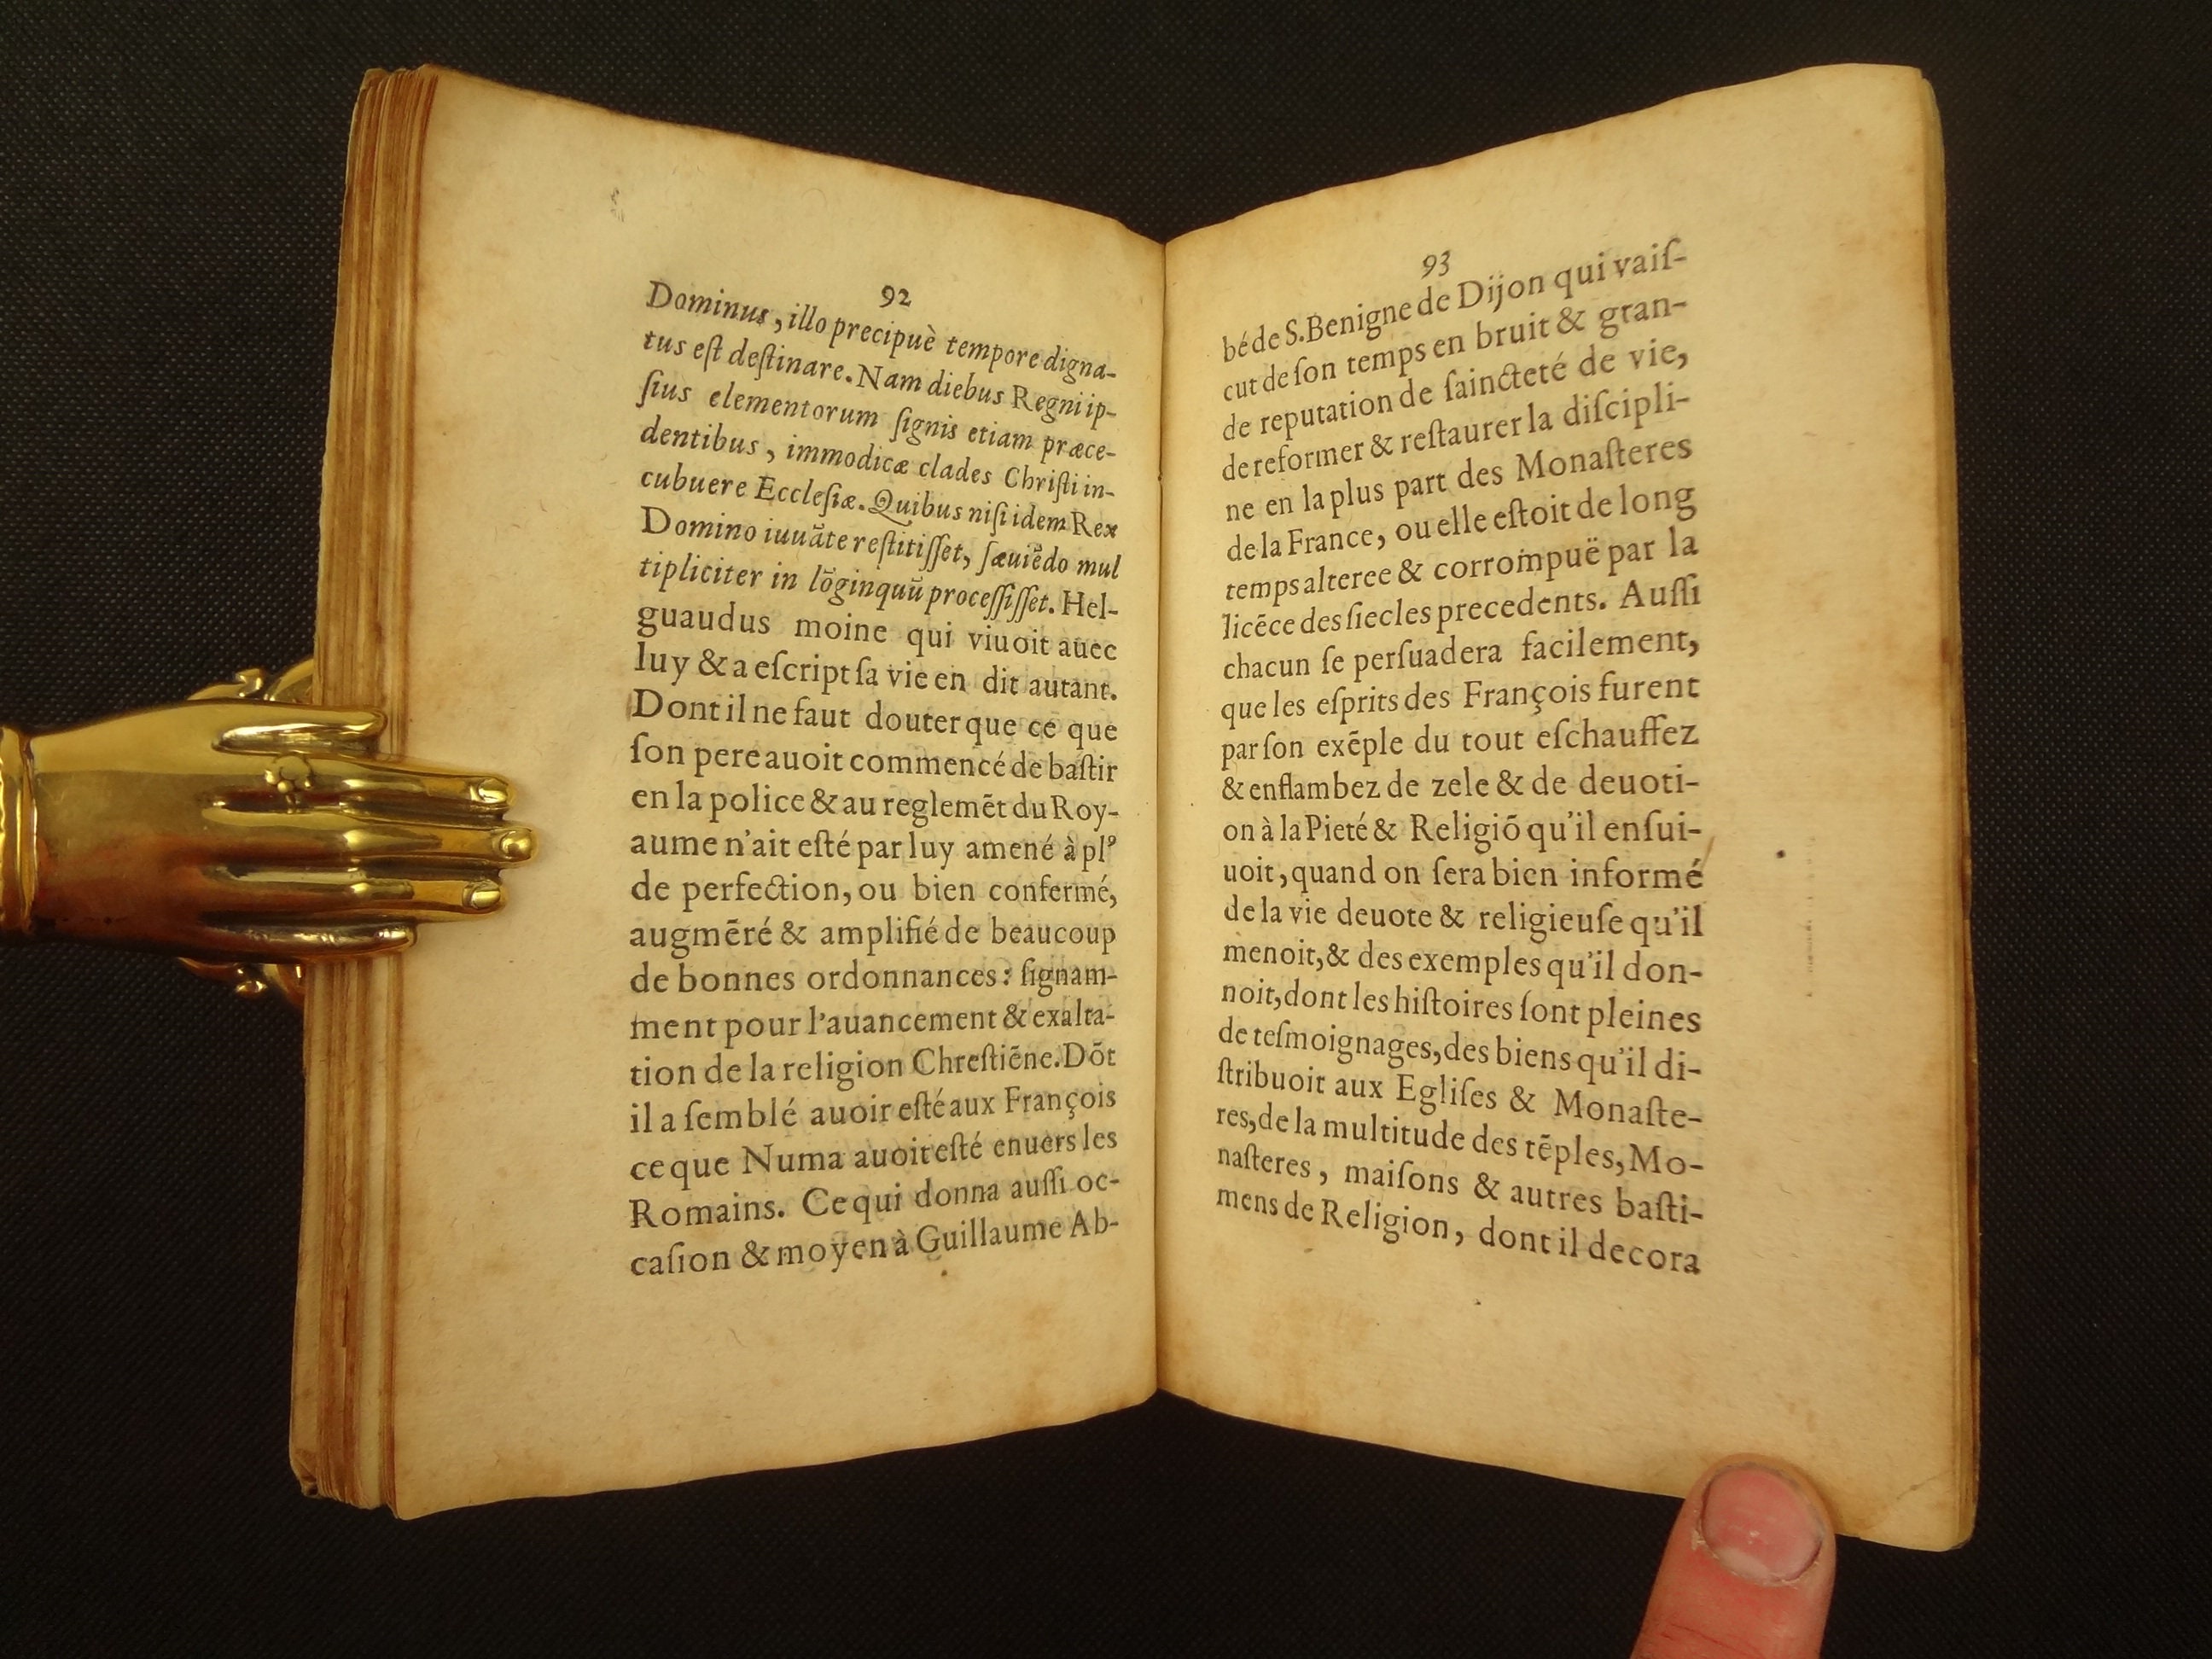 92
Dominus, illo precipuè tempore digna-
tus eſt deſtinare. Nam diebus Regni ip-
ſius elementorum ſignis etiam præce-
dentibus, immodicæ clades Chriſti in-
cubuere Eccleſiæ. Quibus niſi idem Rex
Domino iuuāte reſtitiſſet, ſæuiēdo mul
tipliciter in lōginquū proceſſiſſet. Hel-
guaudus moine qui viuoit auec
luy & a eſcript ſa vie en dit autant.
Dont il ne faut douter que ce que
ſon pere auoit commencé de baſtir
en la police & au reglemēt du Roy-
aume n'ait eſté par luy amené à plꝰ
de perfection, ou bien confermé,
augmēré & amplifié de beaucoup
de bonnes ordonnances: ſignam-
ment pour l'auancement & exalta-
tion de la religion Chreſtiēne. Dōt
il a ſemblé auoir eſté aux François
ce que Numa auoit eſté enuers les
Romains. Ce qui donna auſſi oc-
caſion & moyen à Guillaume Ab-
93
bé de S. Benigne de Dijon qui vaiſ-
cut de ſon temps en bruit & gran-
de reputation de ſaincteté de vie,
de reformer & reſtaurer la diſcipli-
ne en la plus part des Monaſteres
de la France, ou elle eſtoit de long
temps alteree & corrompuë par la
licēce des ſiecles precedents. Auſſi
chacun ſe perſuadera facilement,
que les eſprits des François furent
par ſon exēple du tout eſchauffez
& enflambez de zele & de deuoti-
on à la Pieté & Religiō qu'il enſui-
uoit, quand on ſera bien informé
de la vie deuote & religieuſe qu'il
menoit, & des exemples qu'il don-
noit, dont les hiſtoires ſont pleines
de teſmoignages, des biens qu'il di-
ſtribuoit aux Egliſes & Monaſte-
res, de la multitude des tēples, Mo-
naſteres, maiſons & autres baſti-
mens de Religion, dont il decora